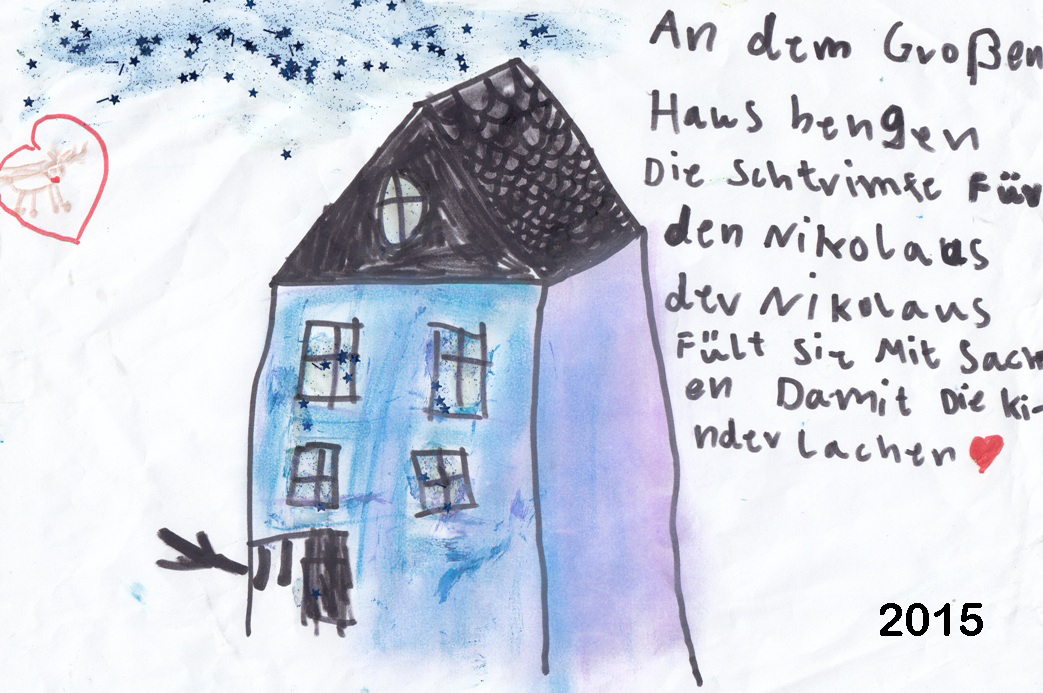 An dem Großen
Haus hengen
Die Schtrimfe Für
den Nikolaus
der Nikolaus
Fült Sie Mit Sach
en Damit Die Ki-
nder Lachen
2015